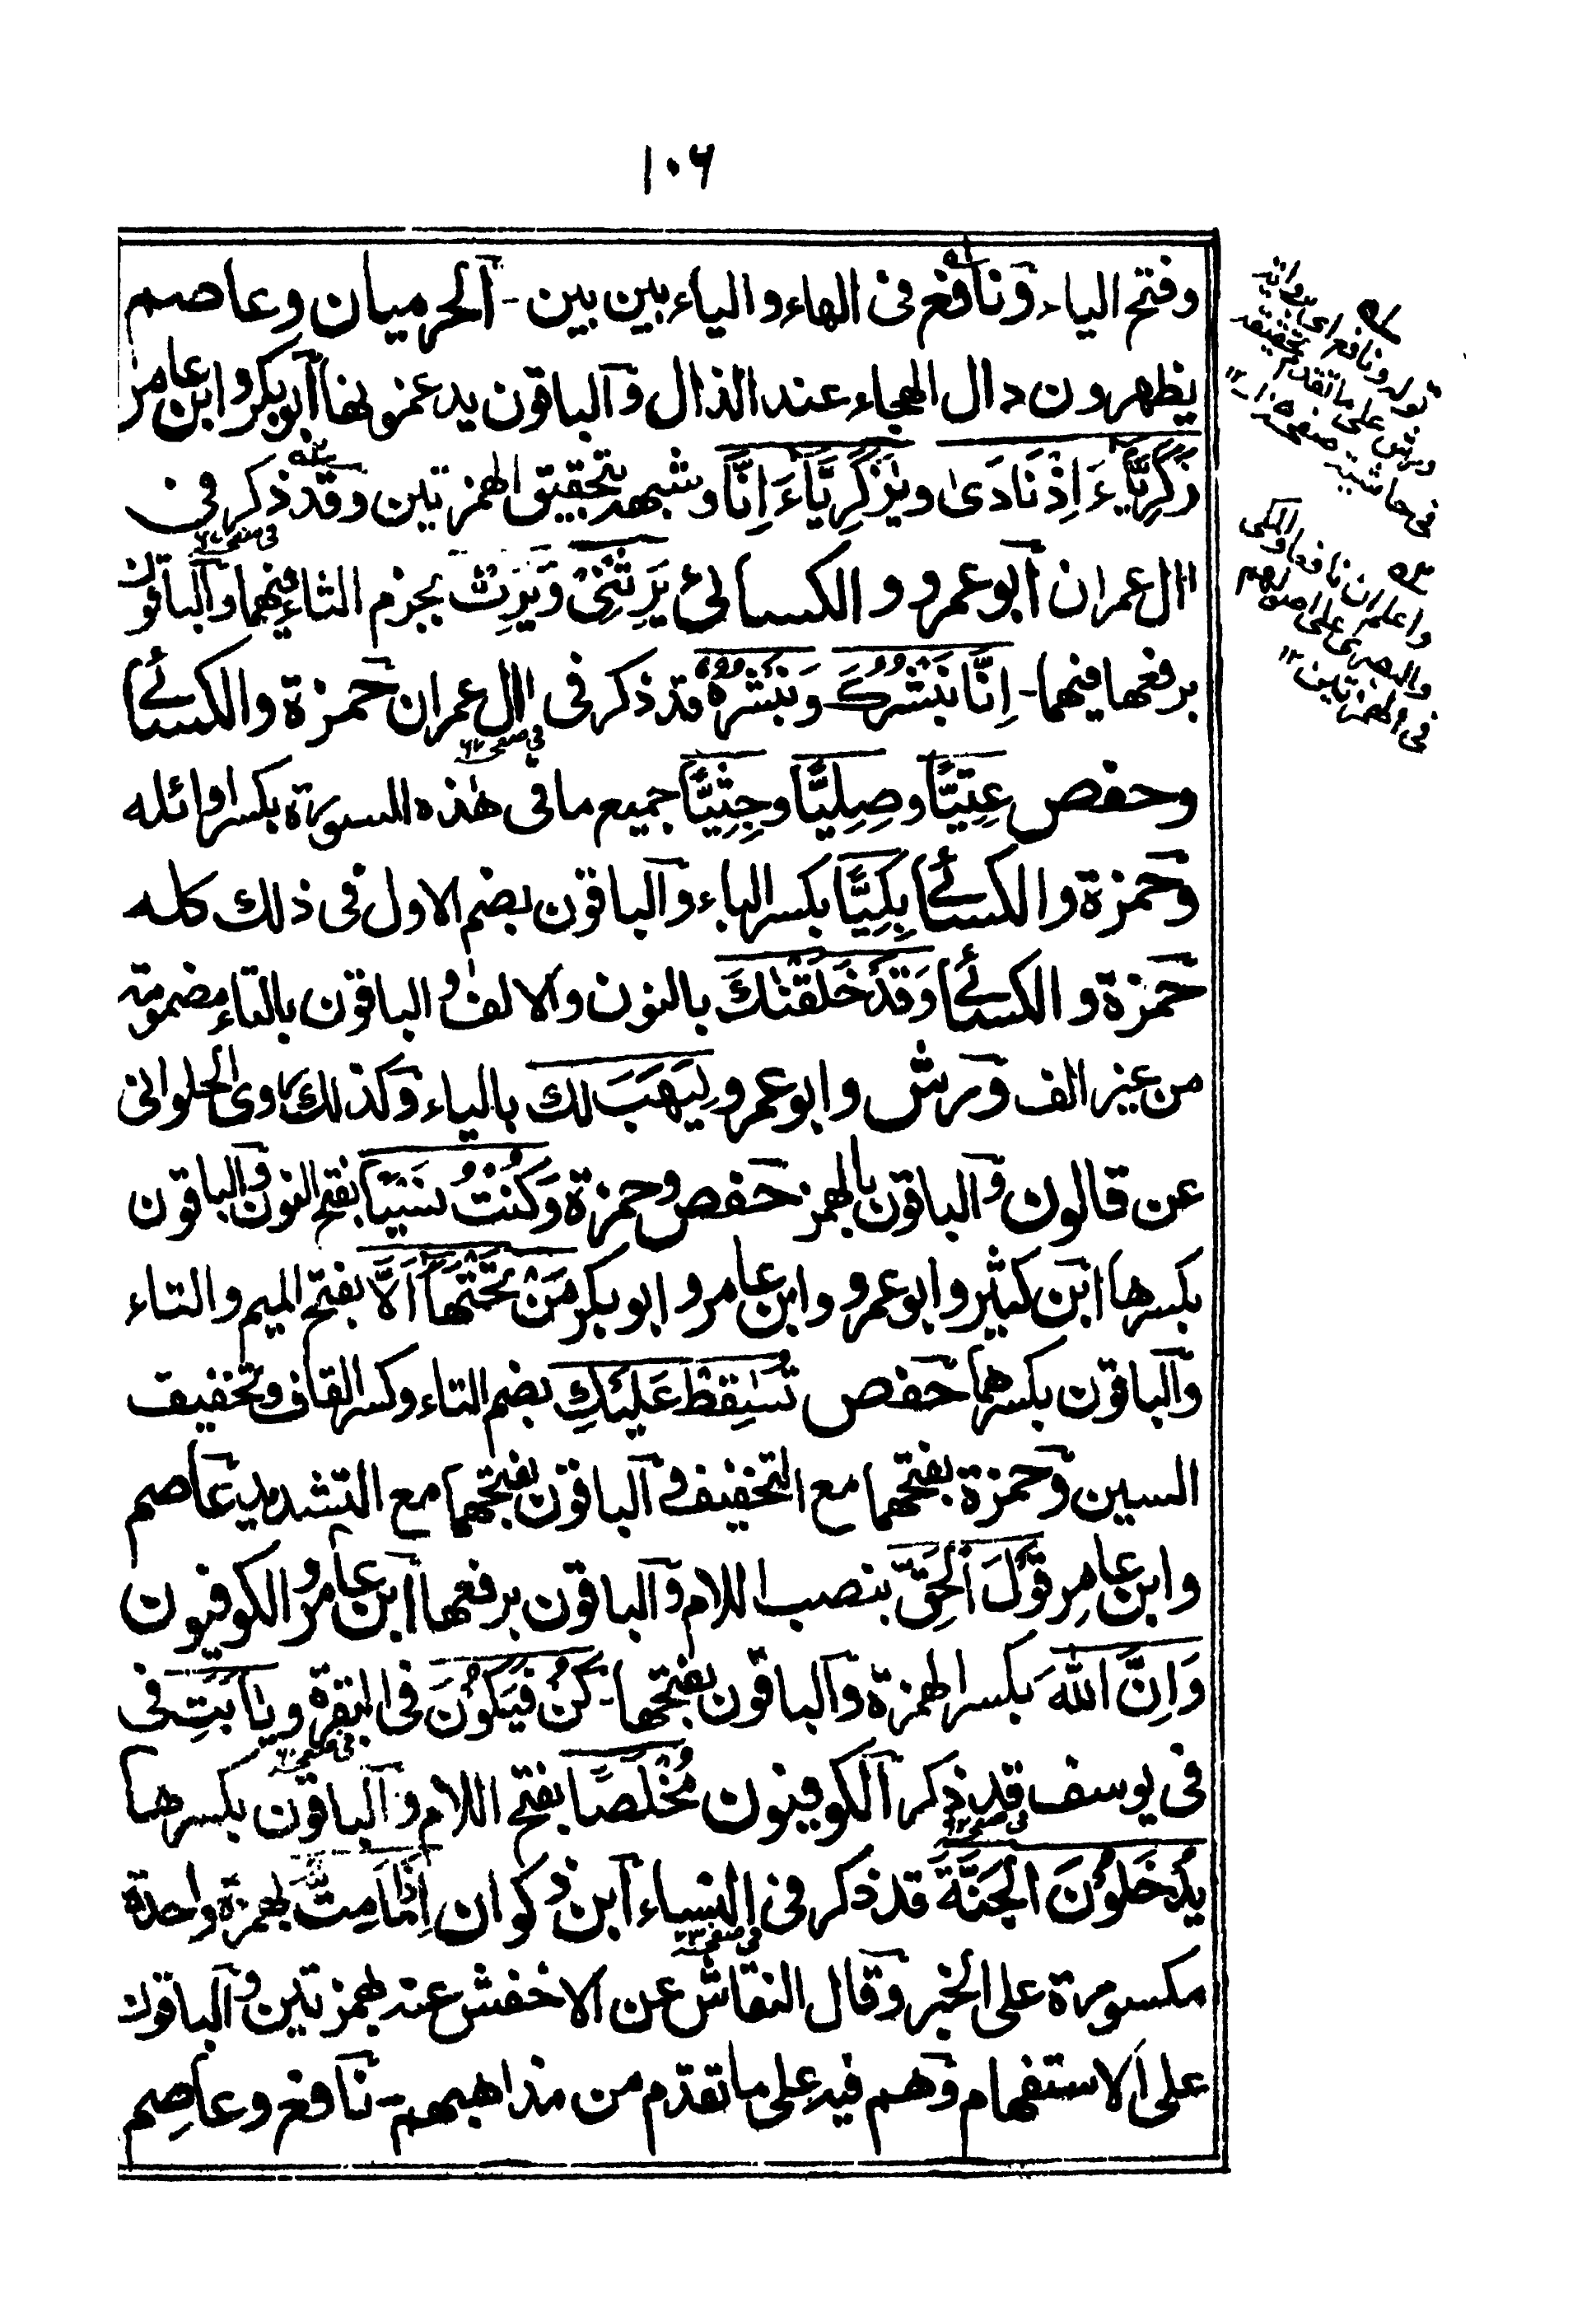 ١٠٦
وفتح الياء ونافع فى الهاء والياء بين بين - الحرميان وعاصم
يظهرون دال الهجاء عند الذال والباقون يدغمونها ابوبكر وابن عامر
زَكَرِيَّاءَ اِذْ نَادَىٰ ويٰزَكَرِيَّاءُ اِنَّا وشبهه بتحقيق الهمزتين وقد ذكر فى
اٰل عمران ابو عمرو والكسائى يَرِثْنِىْ وَيَرِثْ بجزم الثاء فيهما والباقون
برفعها فيهما - اِنَّا نُبَشِّرُكَ وَنُبَشِّرُهٗ قد ذكر فى اٰل عمران حمزة والكسائى
فى صفحه
وحفص عِتِيًّا وصِلِيًّا وجِثِيًّا جميع ما فى هٰذه السورة بكسر اوائله
وحمزة والكسائى بِكِيًّا بكسر الباء والباقون بضم الاول فى ذلك كله
حمزة والكسائى وَقَدْ خَلَقْنٰكَ بالنون والالف والباقون بالتاء مضمومة
من غير الف ورش وابو عمرو لِيَهَبَ لك بالياء وكذلك روى الحلوانى
عن قالون والباقون بالهمز حفص وحمزة وَكُنْتُ نَسْيًا بفتح النون والباقون
بكسرها ابن كثير وابو عمرو وابن عامر وابو بكر مَنْ تَحْتَهَا اَلَّا بفتح الميم والتاء
والباقون بكسرهما حفص تُسٰقِطْ عَلَيْكِ بضم التاء وكسر القاف وتخفيف
السين وحمزة بفتحهما مع التخفيف والباقون بفتحهما مع التشديد عاصم
وابن عامر قَوْلَ الْحَقِّ بنصب اللام والباقون برفعها ابن عامر والكوفيون
وَاِنَّ اللّٰهَ بكسر الهمزة والباقون بفتحها - كُنْ فَيَكُوْنَ فى البقرة ويٰاَبَتِ فى
فى يوسف قد ذكر الكوفيون مُخْلَصًا بفتح اللام والباقون بكسرها
يُدْخَلُوْنَ الْجَنَّةَ قد ذكر فى النساء ابن ذكوان اِذَا مَا مِتُّ بهمزة واحدة
مكسورة على الخبر وقال النقاش عن الاخفش عنه بهمزتين والباقون
على الاستفهام وهم فيه على ما تقدم من مذاهبهم - نافع وعاصم
قوله ونافع اى برواية
ورش على ما تقدم تحقيقه
فى حاشية صفحة
واعلم ان نافعا والمكى
والبصرى على اصولهم
فى الهمزتين ١٢